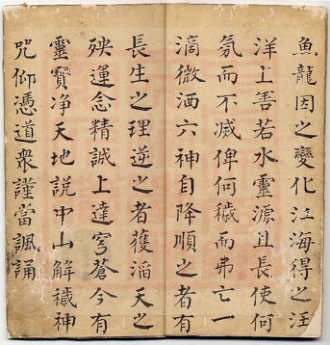 魚龍因之變化江海得之汪
洋上善若水靈源且長使何
氛而不滅俾何穢而弗亡一
滴微洒六神自降順之者有
長生之理逆之者獲滔天之
殃運念精誠上達穹蒼今有
靈寶淨天地説中山解穢神
咒仰憑道衆謹當諷誦